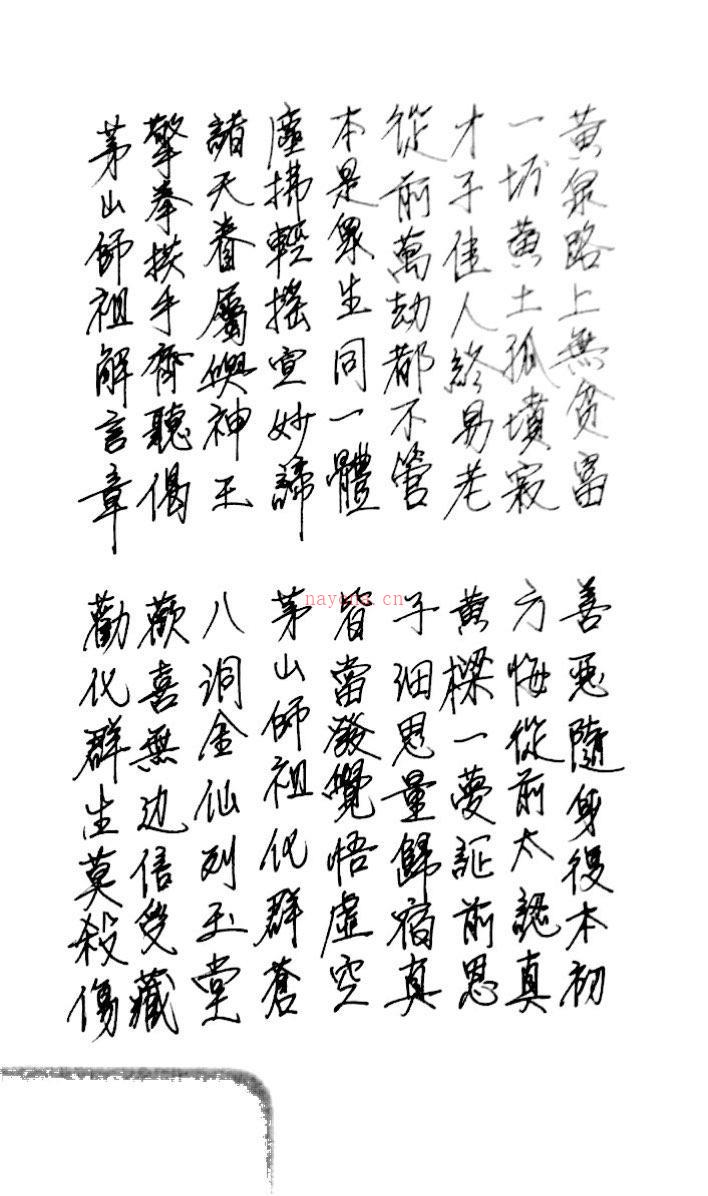 黃泉路上無貧富　善惡隨身復本初
一坯黃土孤墳寂　方悔從前太認真
才子佳人終易老　黃樑一夢証前思
從前萬劫都不管　子細思量歸宿真
本是衆生同一體　皆當發覺悟虛空
塵拂輕搖宣妙諦　茅山師祖化群蒼
諸天眷屬與神王　八洞金仙列玉堂
擎拳扶手齊聽偈　歡喜無边信受藏
茅山師祖解言章　勸化群生莫殺傷
nayona.cn